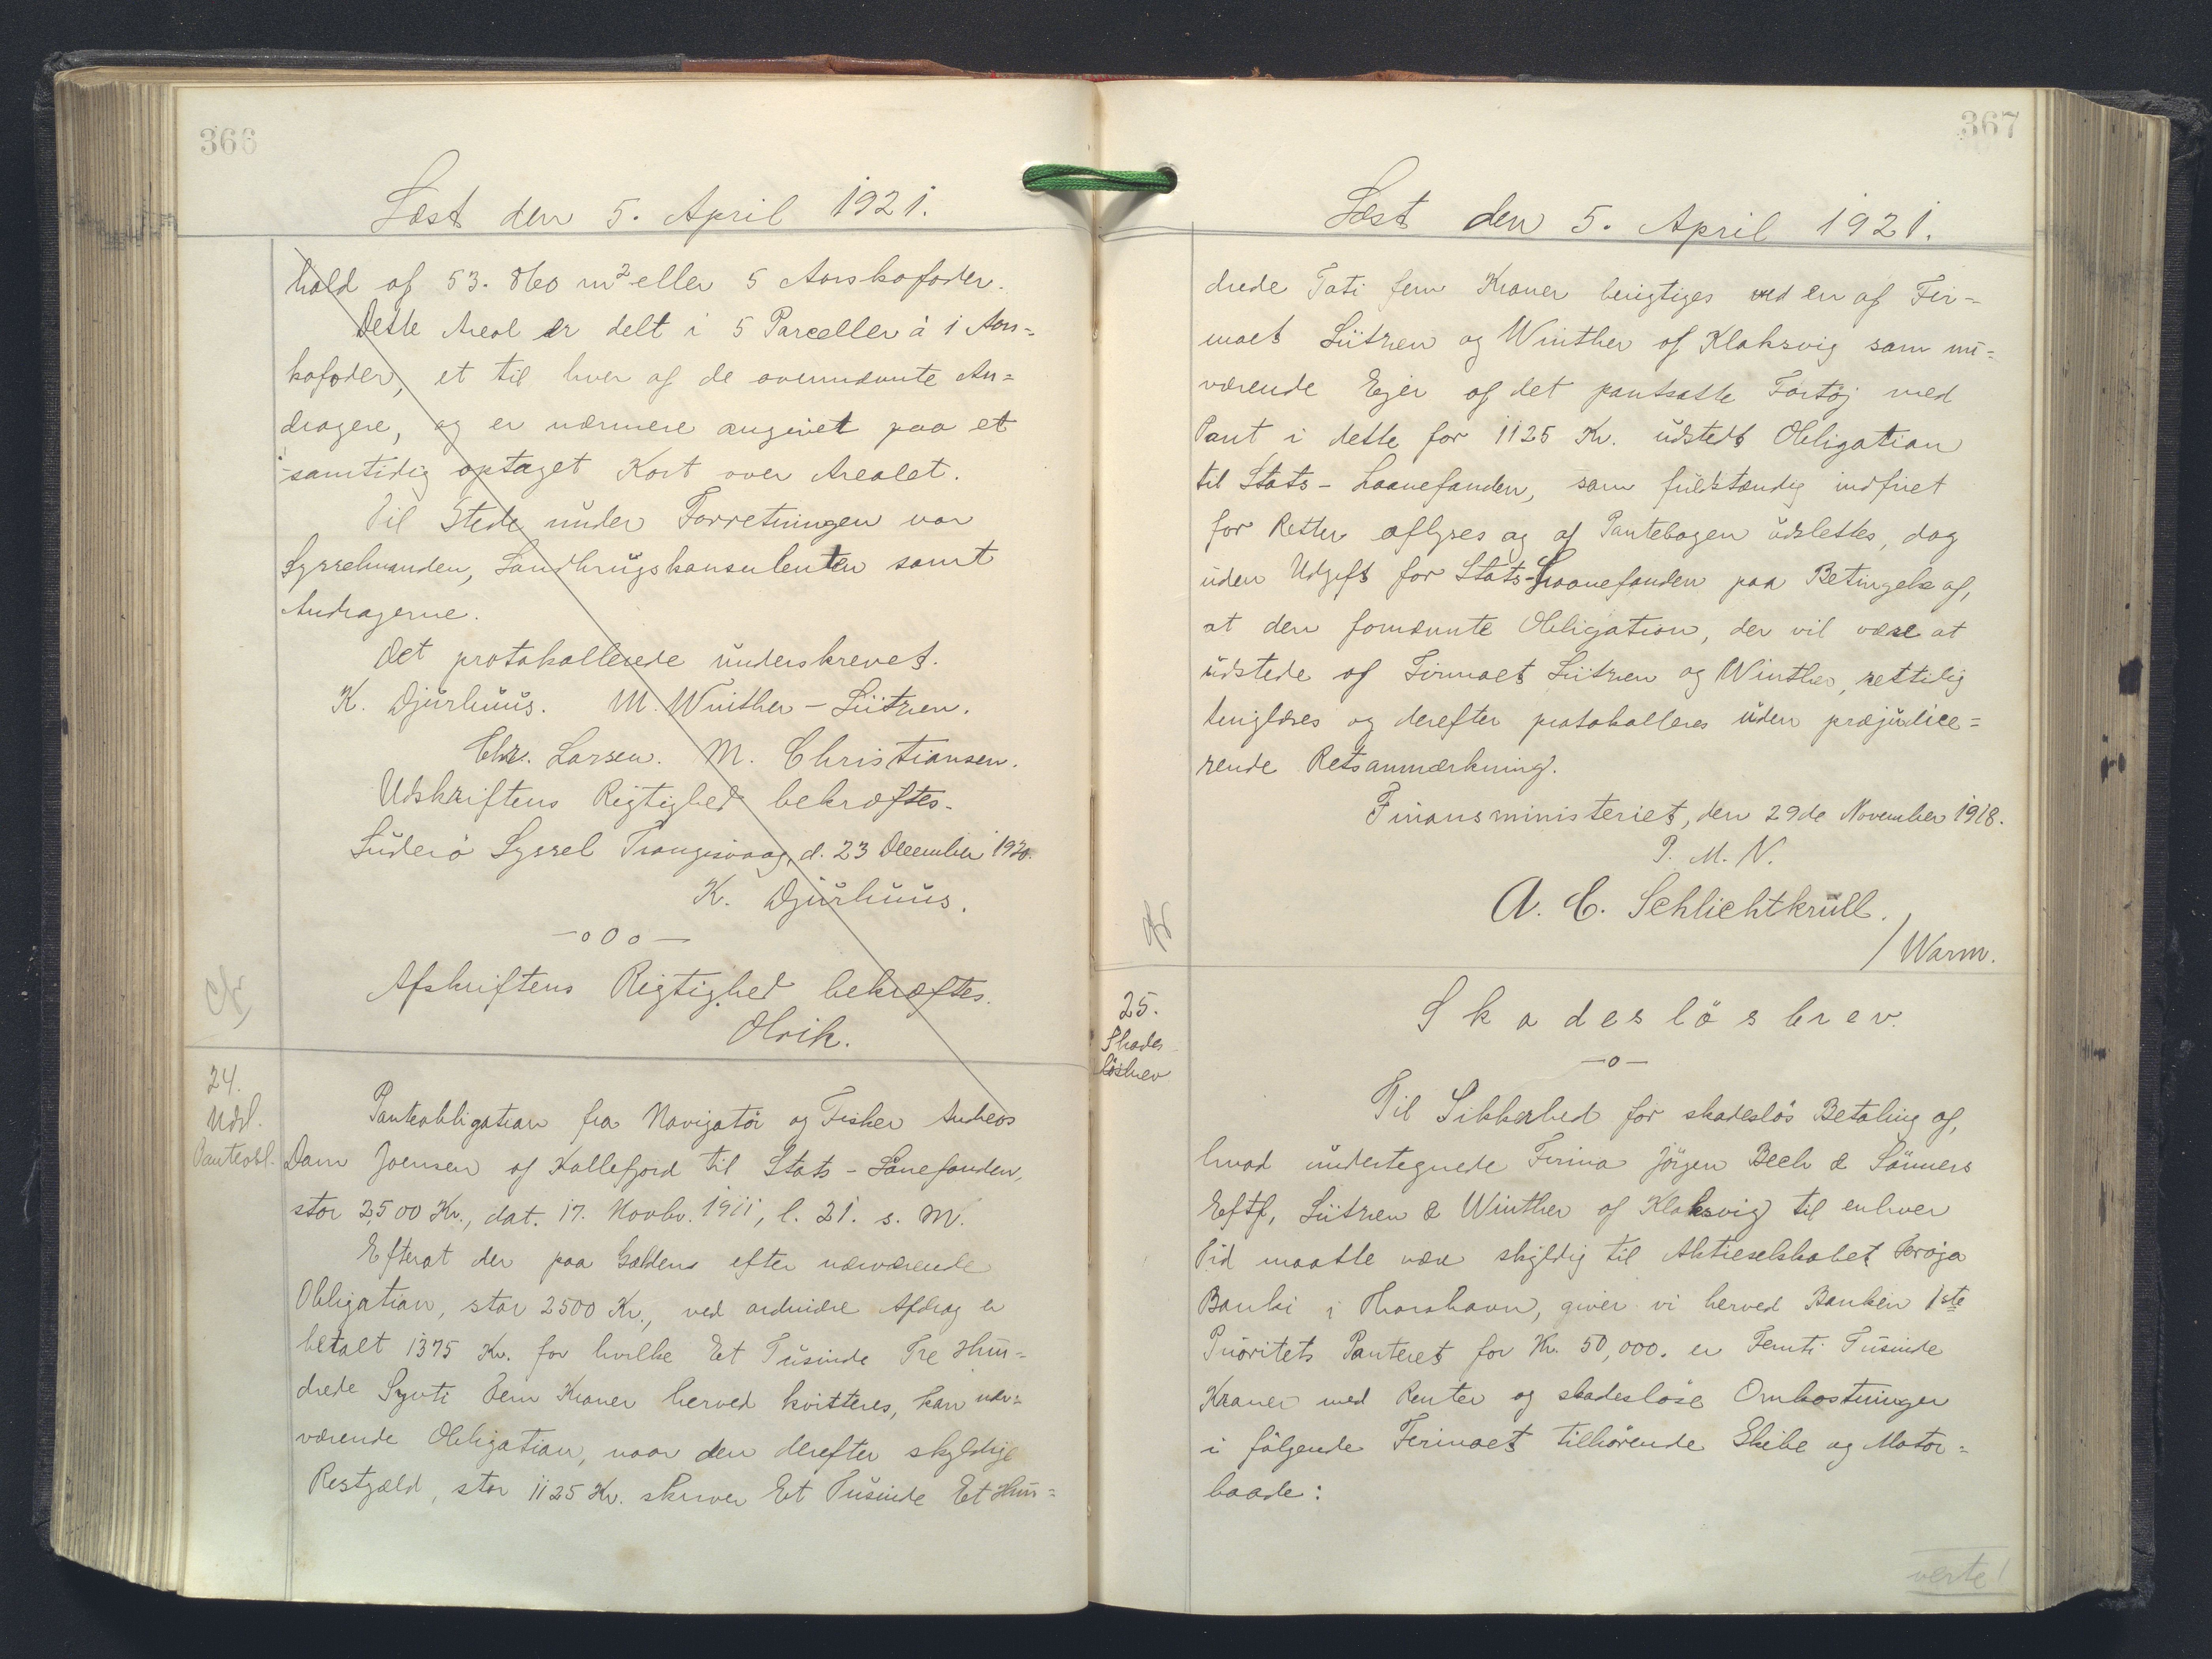 366
Læst den 5. April 1921.
hold af 53.860 m² eller 5 Aarskofoder.
Dette Areal er delt i 5 Parceller à 1 Aars=
kofoder, et til hver af de ovennævnte An=
dragere, og er nærmere angivet paa et
samtidig optaget Kort over Arealet.
Til Stede under Forretningen var
Sysselmanden, Landbrugskonsulenten samt
Andragerne.
Det protokollerede underskrevet.
K. Djurhuus. M. Winther - Lützen.
Chr. Larsen. M. Christiansen.
Udskriftens Rigtighed bekræftes.
Suderø Syssel Trangisvaag, d. 23 December 1920.
K. Djurhuus.
-o0o-
Afskriftens Rigtighed bekræftes.
Olrik.
24.
Udsl.
Panteobl.
Panteobligation fra Navigatør og Fisker Andreas
Dam Joensen af Kollefjord til Stats-Lånefonden,
stor 2,500 Kr., dat. 17. Novbr. 1911, l. 21. s. M.
Efterat der paa Gældens efter nærværende
Obligation, stor 2500 Kr., ved ordinære Afdrag er
betalt 1375 Kr. for hvilke Et Tusinde Tre Hun=
drede Syvti Fem Kroner herved kvitteres, kan nær=
værende Obligation, naar den derefter skyldige
Restgæld, stor 1125 Kr. skriver Et Tusinde Et Hun=
367
Læst den 5. April 1921.
drede Toti fem Kroner berigtiges ved en af Fir=
maet Lützen og Winther af Klaksvig som nu=
værende Ejer af det pantsatte Fartøj med
Pant i dette for 1125 Kr. udstedt Obligation
til Stats-Laanefonden, som fuldstændig indfriet
for Retten aflyses og af Pantebogen udslettes, dog
uden Udgift for Stats-Laanefonden paa Betingelse af,
at den fornævnte Obligation, der vil være at
udstede af Firmaet Lützen og Winther, rettilig
tinglæses og derefter protokolleres uden præjudice=
rende Retsanmærkning.
Finansministeriet, den 29de November 1918.
P. M. V.
A. C. Schlichtkrull.
/ Warm.
25.
Skades
løsbrev
Skadesløsbrev.
-o-
Til Sikkerhed for skadesløs Betaling af,
hvad undertegnede Firma Jörgen Bech & Sönners
Eftf, Lützen & Winther af Klaksvig til enhver
Tid maatte være skyldig til Aktieselskabet Føroya
Banki i Thorshavn, giver vi herved Banken 1ste
Prioritets Panteret for Kr. 50,000. er Femti Tusinde
Kroner med Renter og skadesløse Omkostninger
i følgende Firmaet tilhørende Skibe og Motor=
baade:
verte!